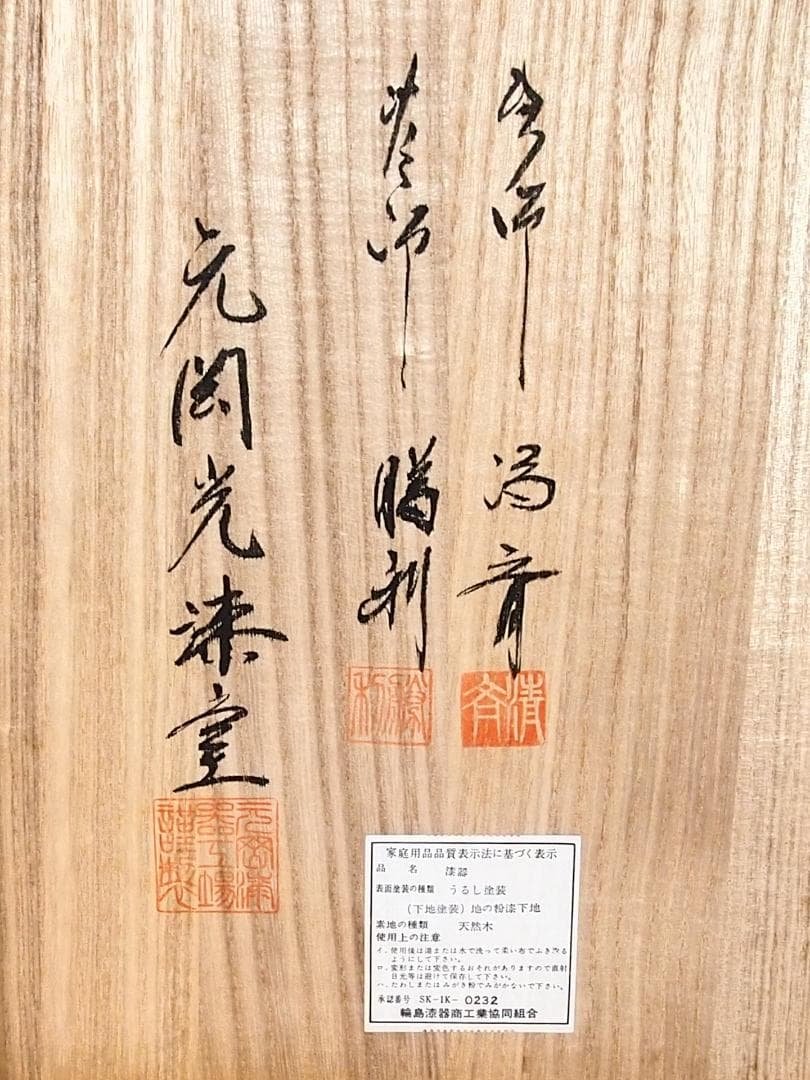 塗師 清斉
蒔師 勝利
元岡光漆室
清斉
勝利
家庭用品品質表示法に基づく表示
品名 漆器
表面塗装の種類 うるし塗装
(下地塗装) 地の粉漆下地
素地の種類 天然木
使用上の注意
イ. 使用後は湯または水で洗って柔い布でふき取る
ようにして下さい。
ロ. 変形または変色するおそれがありますので直射
日光等は避けて保存して下さい。
ハ. たわしまたはみがき粉でみがかないで下さい。
承認番号 SK-IK- 0232
輪島漆器商工業協同組合